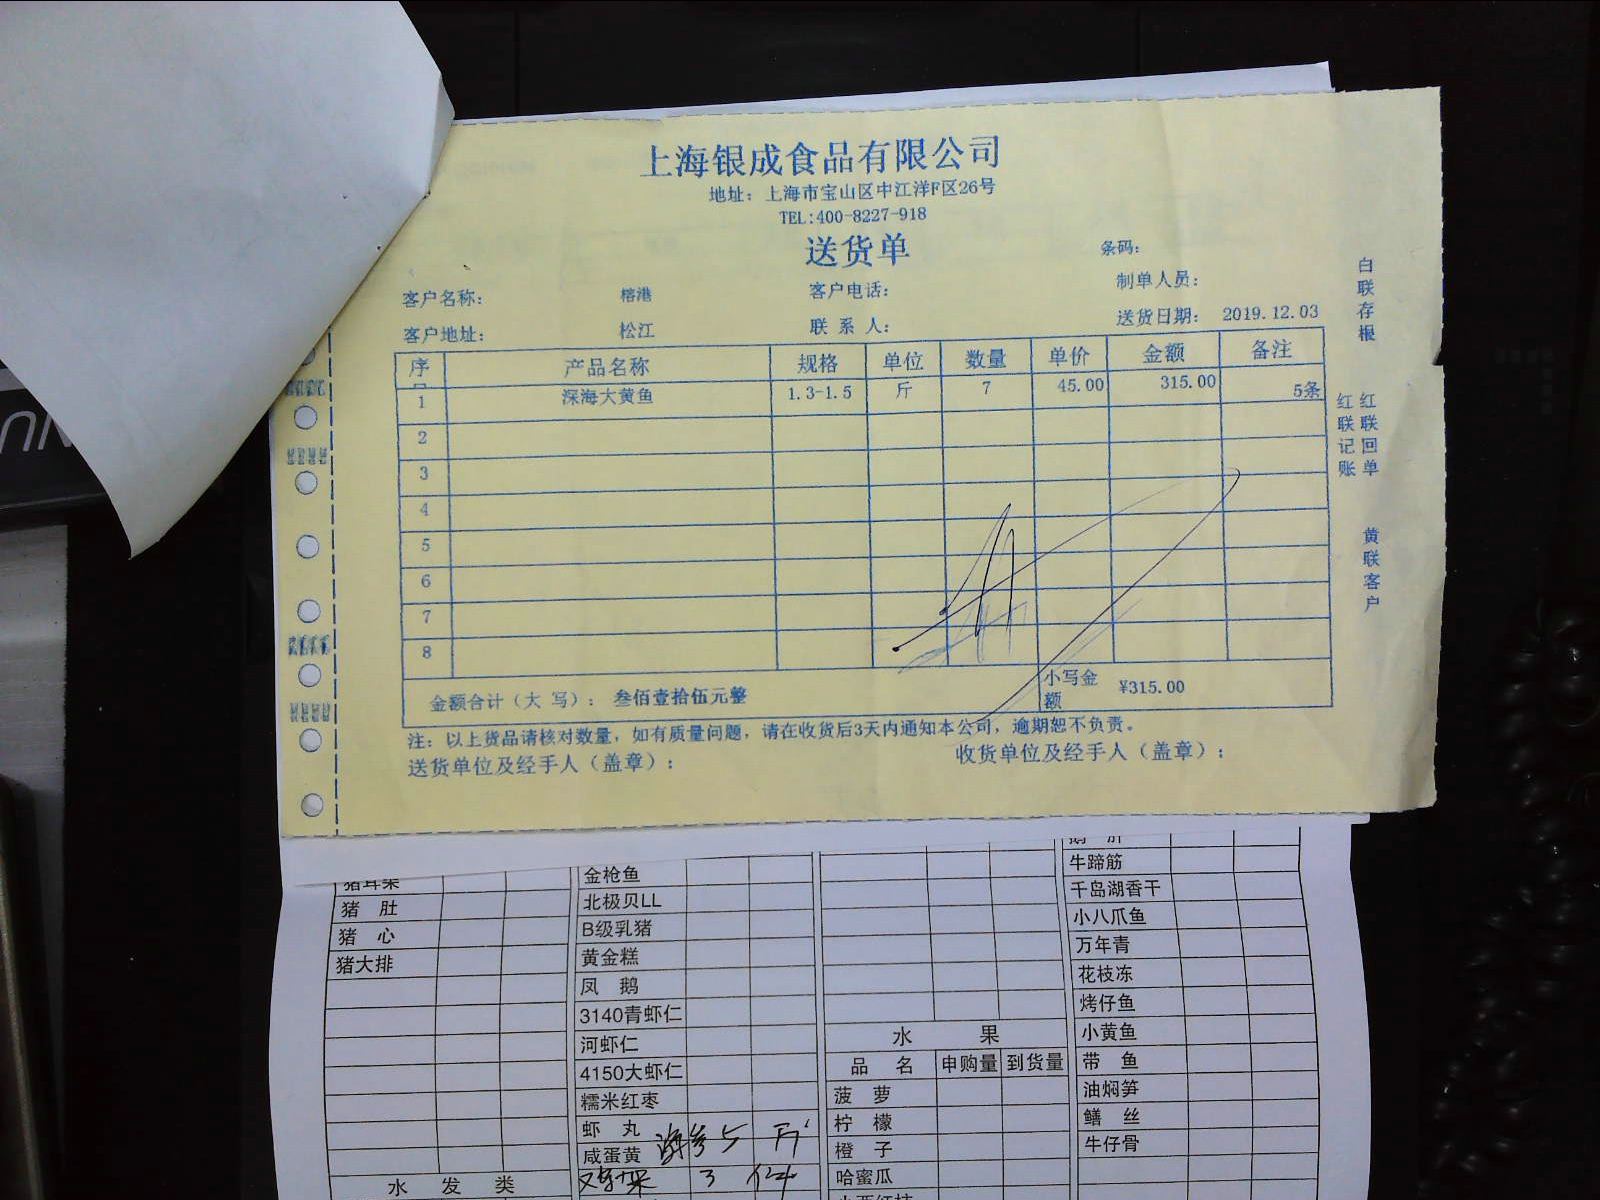 上海银成食品有限公司
地址：上海市宝山区中江洋F区26号
TEL:400-8227-918
送货单
条码：
客户名称： 榕港 客户电话： 制单人员：
客户地址： 松江 联系人： 送货日期： 2019.12.03
序 产品名称 规格 单位 数量 单价 金额 备注
1 深海大黄鱼 1.3-1.5 斤 7 45.00 315.00 5条
2
3
4
5
6
7
8
金额合计（大 写）： 叁佰壹拾伍元整 小写金额 ¥315.00
注：以上货品请核对数量，如有质量问题，请在收货后3天内通知本公司，逾期恕不负责。
送货单位及经手人（盖章）： 收货单位及经手人（盖章）：
白联存根
红联记账
红联回单
黄联客户
猪肚
猪心
猪大排
水发类
金枪鱼
北极贝LL
B级乳猪
黄金糕
凤鹅
3140青虾仁
河虾仁
4150大虾仁
糯米红枣
虾丸
咸蛋黄
水果
品名 申购量 到货量
菠萝
柠檬
橙子
哈蜜瓜
牛蹄筋
千岛湖香干
小八爪鱼
万年青
花枝冻
烤仔鱼
小黄鱼
带鱼
油焖笋
鳝丝
牛仔骨